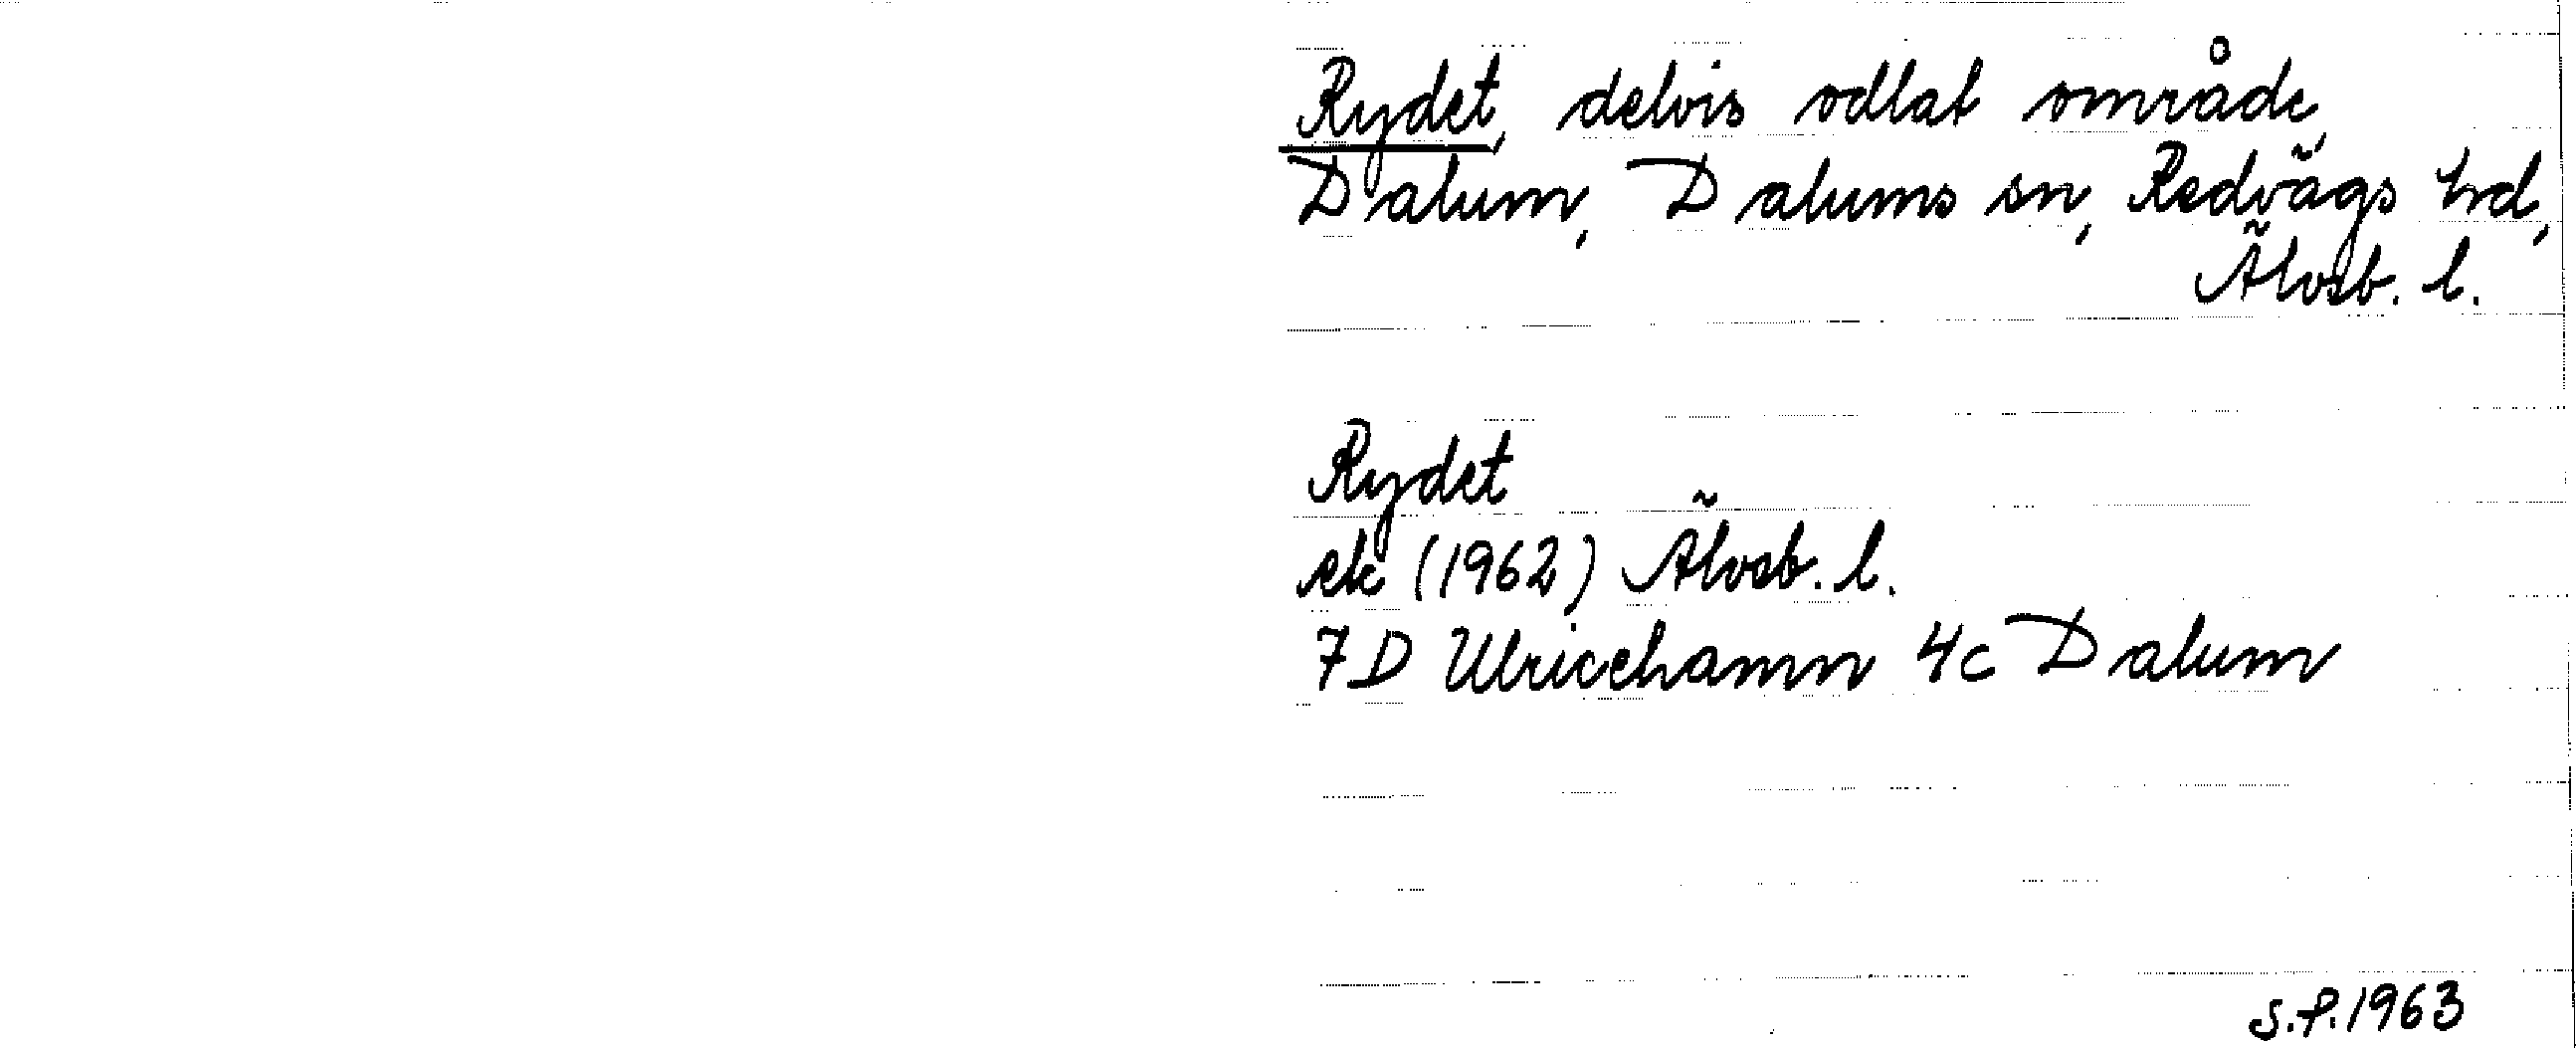 Rydet, delvis odlat område,
Dalum, Dalums sn, Redvägs hd,
Älvsb. l.
Rydet
ek (1962) Älvsb. l.
7D Ulricehamn 4c Dalum
S.P. 1963